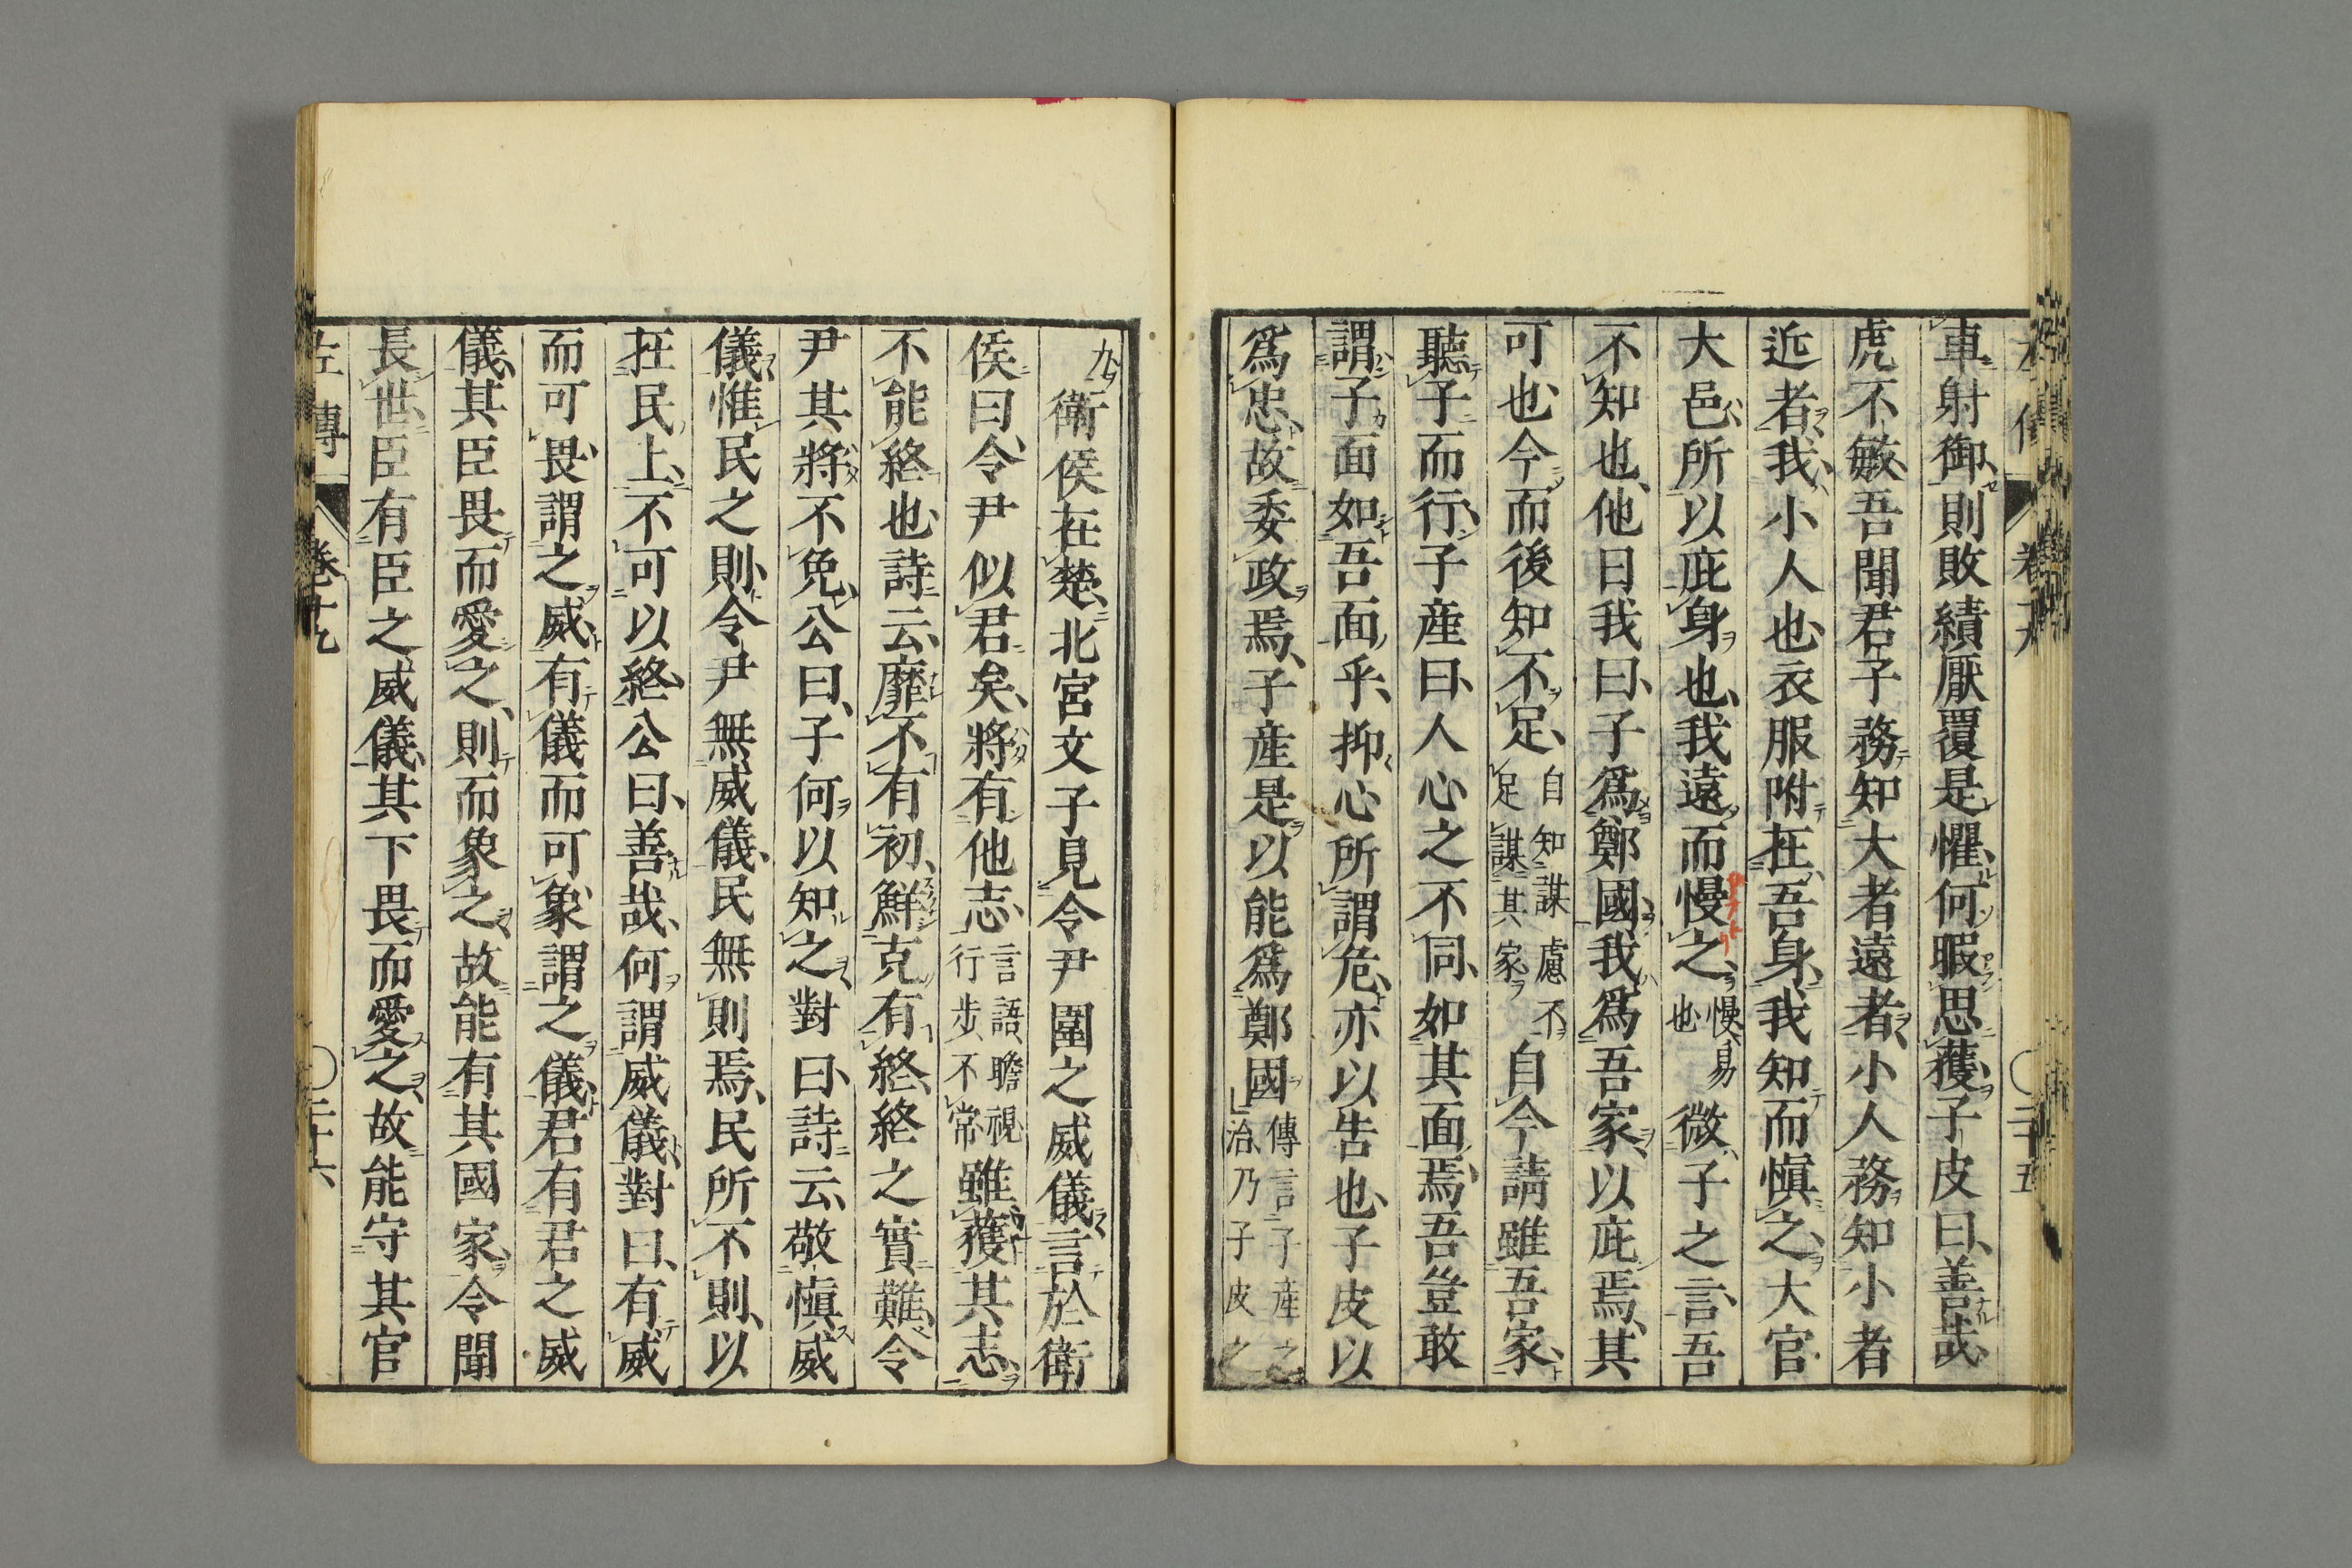 車射御則敗績厭覆是懼何暇思獲子皮曰善哉
虎不敏吾聞君子務知大者遠者小人務知小者
近者我小人也衣服附在吾身我知而慎之大官
大邑所以庇身也我遠而慢之慢易也微子之言吾
不知也他日我曰子爲鄭國我爲吾家以庇焉其
可也今而後知不足自知謀慮不足謀其家自今請雖吾家
聽子而行子産曰人心之不同如其面焉吾豈敢
謂子面如吾面乎抑心所謂危亦以告也子皮以
爲忠故委政焉子産是以能爲鄭國傳言子産之治乃子皮之
九
衛侯在楚北宮文子見令尹圍之威儀言於衛
侯曰令尹似君矣將有他志言語瞻視行步不常雖獲其志
不能終也詩云靡不有初鮮克有終終之實難令
尹其將不免公曰子何以知之對曰詩云敬慎威
儀惟民之則令尹無威儀民無則焉民所不則以
在民上不可以終公曰善哉何謂威儀對曰有威
而可畏謂之威有儀而可象謂之儀君有君之威
儀其臣畏而愛之則而象之故能有其國家令聞
長世臣有臣之威儀其下畏而愛之故能守其官
左傳 卷十九 〇二十六